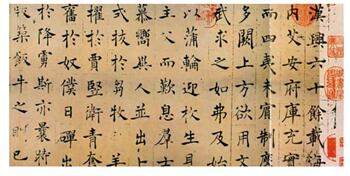 漢興六十餘載海
內艾安府庫充實
而四夷未賓制度
多闕上方欲用文
武求之如弗及始
以蒲輪迎枚生見
主父而歎息群士
慕嚮異人並出卜
式拔於芻牧羊
擢於賈豎衛青奮
奮於奴僕日磾出
於降虜斯亦曩時
版築飯牛之已